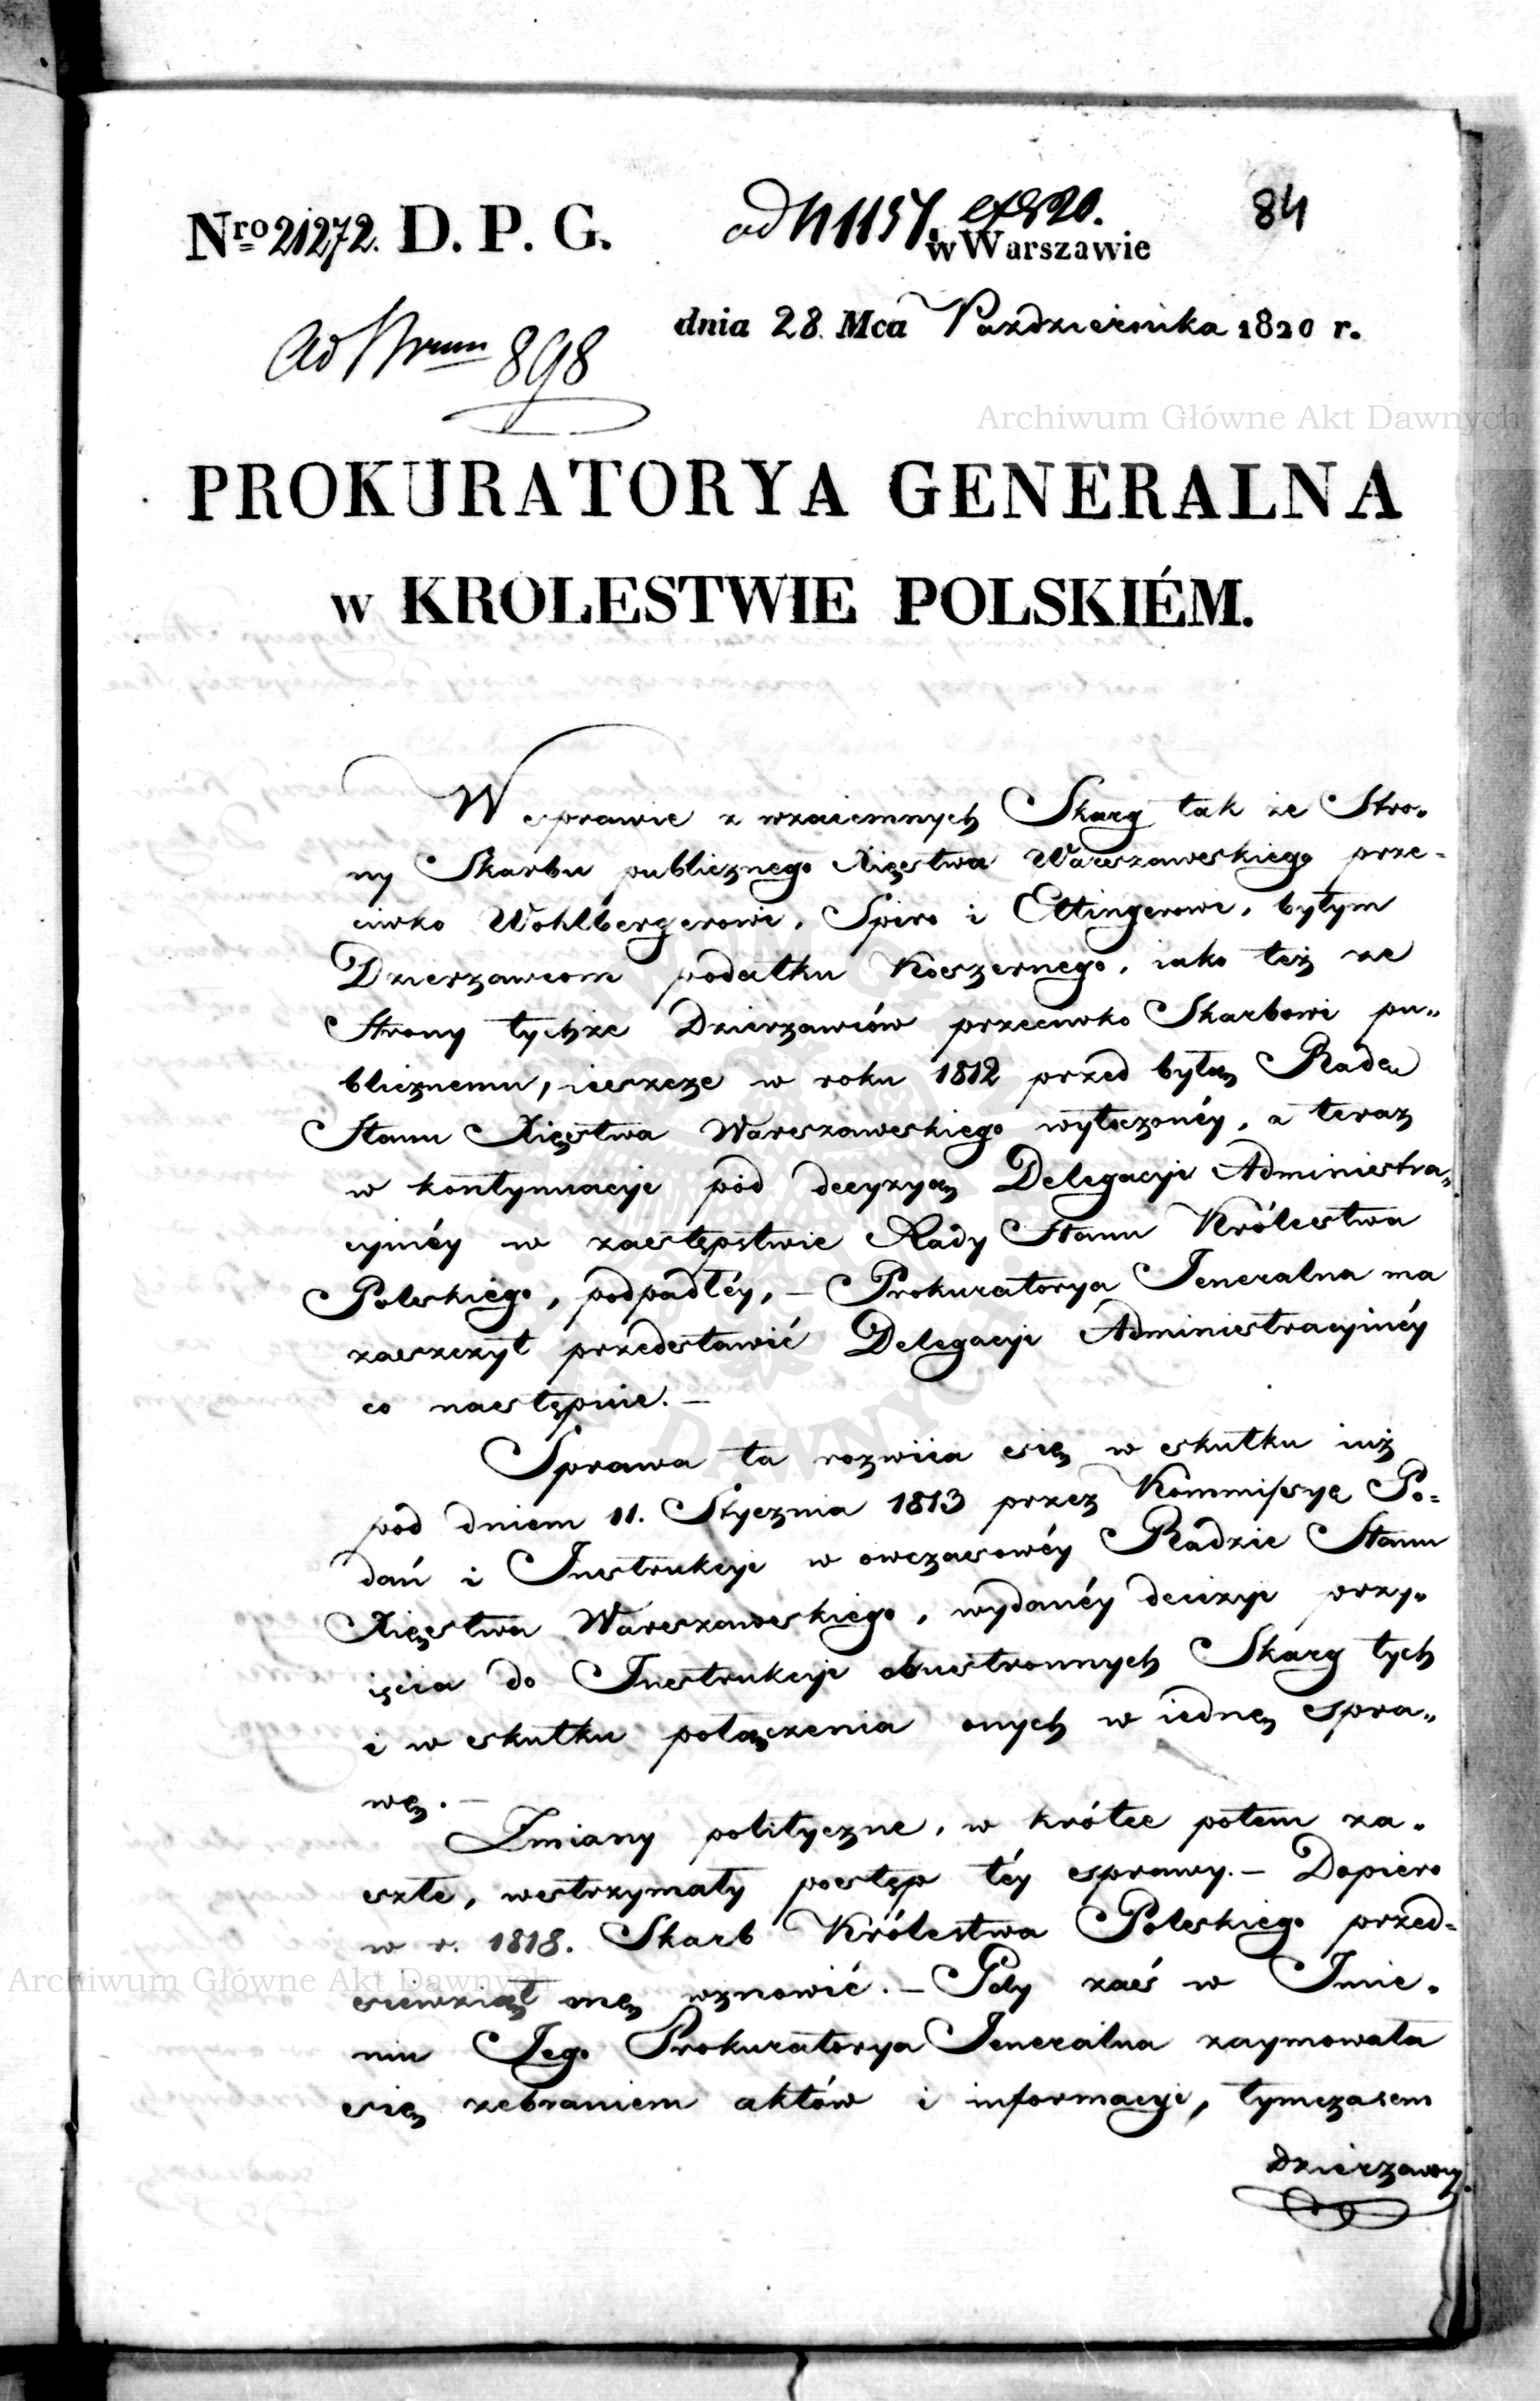 Nro 21272. D. P. G.
ad N 1157. ex 820.
84
w Warszawie
dnia 28. Mca Października 1820 r.
Ad Num 898
Archiwum Główne Akt Dawnych
PROKURATORYA GENERALNA
w KROLESTWIE POLSKIÉM.
W sprawie z wzaiemnych Skarg tak ze Stro„
ny Skarbu publicznego Xięstwa Warszawskiego prze-
ciwko Wohlbergerowi, Spiro i Ettingerowi, byłym
Dzierzawcom podatku Koszernego, iako też ze
Strony tychże Dzierzawców przeciwko Skarbowi pu„
blicznemu, ieszcze w roku 1812 przed byłą Radą
Stanu Xięstwa Warszawskiego wytoczonéy, a teraz
w kontynuacyi pod decyzyą Delegacyi Administra„
cyinéy w zastępstwie Rady Stanu Królestwa
Polskiego, podpadłéy, — Prokuratorya Jeneralna ma
zaszczyt przedstawić Delegacyi Administracyinéy
co następuie. —
Sprawa ta rozwiia się w skutku iuż
pod dniem 11. Stycznia 1813 przez Kommissyę Po-
dań i Instrukcyi w owczasowéy Radzie Stanu
Xięstwa Warszawskiego, wydanéy decizyi przy„
ięcia do Instrukcyi obustronnych Skarg tych
i w skutku połączenia onych w iednę spra„
wę. —
Zmiany polityczne, w krótce potem za„
szłe, wstrzymały postęp téy sprawy. — Dopiero
w r. 1818. Skarb Królestwa Polskiego przed-
siewziął onę wznowić. — Gdy zaś w Imie„
niu Jego Prokuratorya Jeneralna zaymowała
się zebraniem aktów i informacyi, tymczasem
Dzierzawcy
Archiwum Główne Akt Dawnych